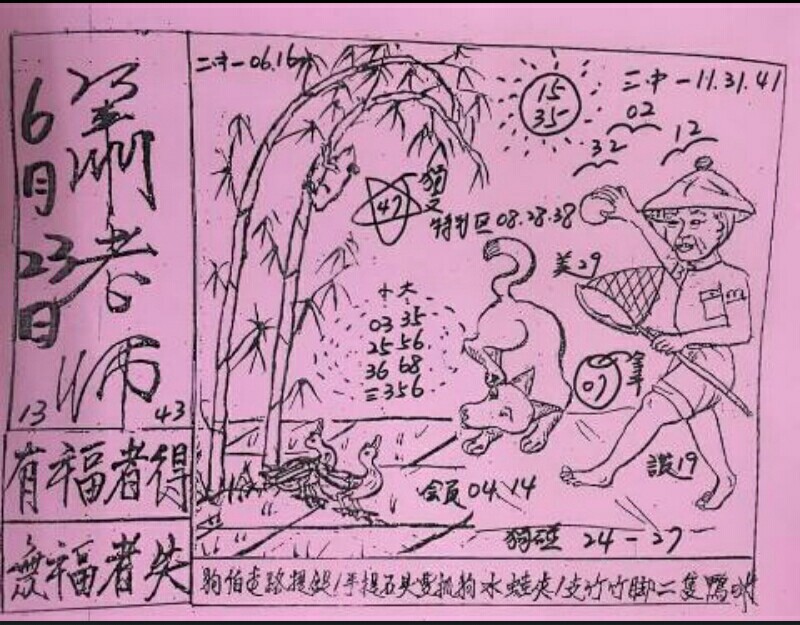 6月23日
蕭老師
13 43
有福者得
無福者失
二中一06.16
15
35
三中一11.31.41
02
12
32
47
特别区08.28.38
美29
十六
03 35
25 56
36 68
三356
07
筆
讚19
会員04.14
24-27
狗伯走路提銀/手提石頭要抓狗水蛙夾/支竹竹脚二隻鴨